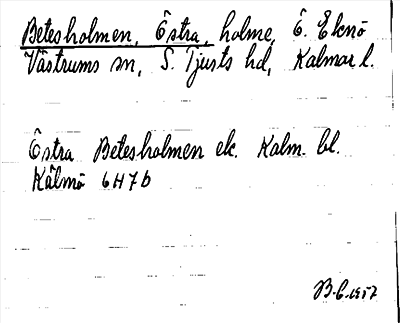 Betesholmen, Östra, holme, Ö. Eknö
Västrums sn, S. Tjusts hd, Kalmar l.
Östra Betesholmen ek. Kalm. bl.
Kälmö 6H7b
B.C. 1957